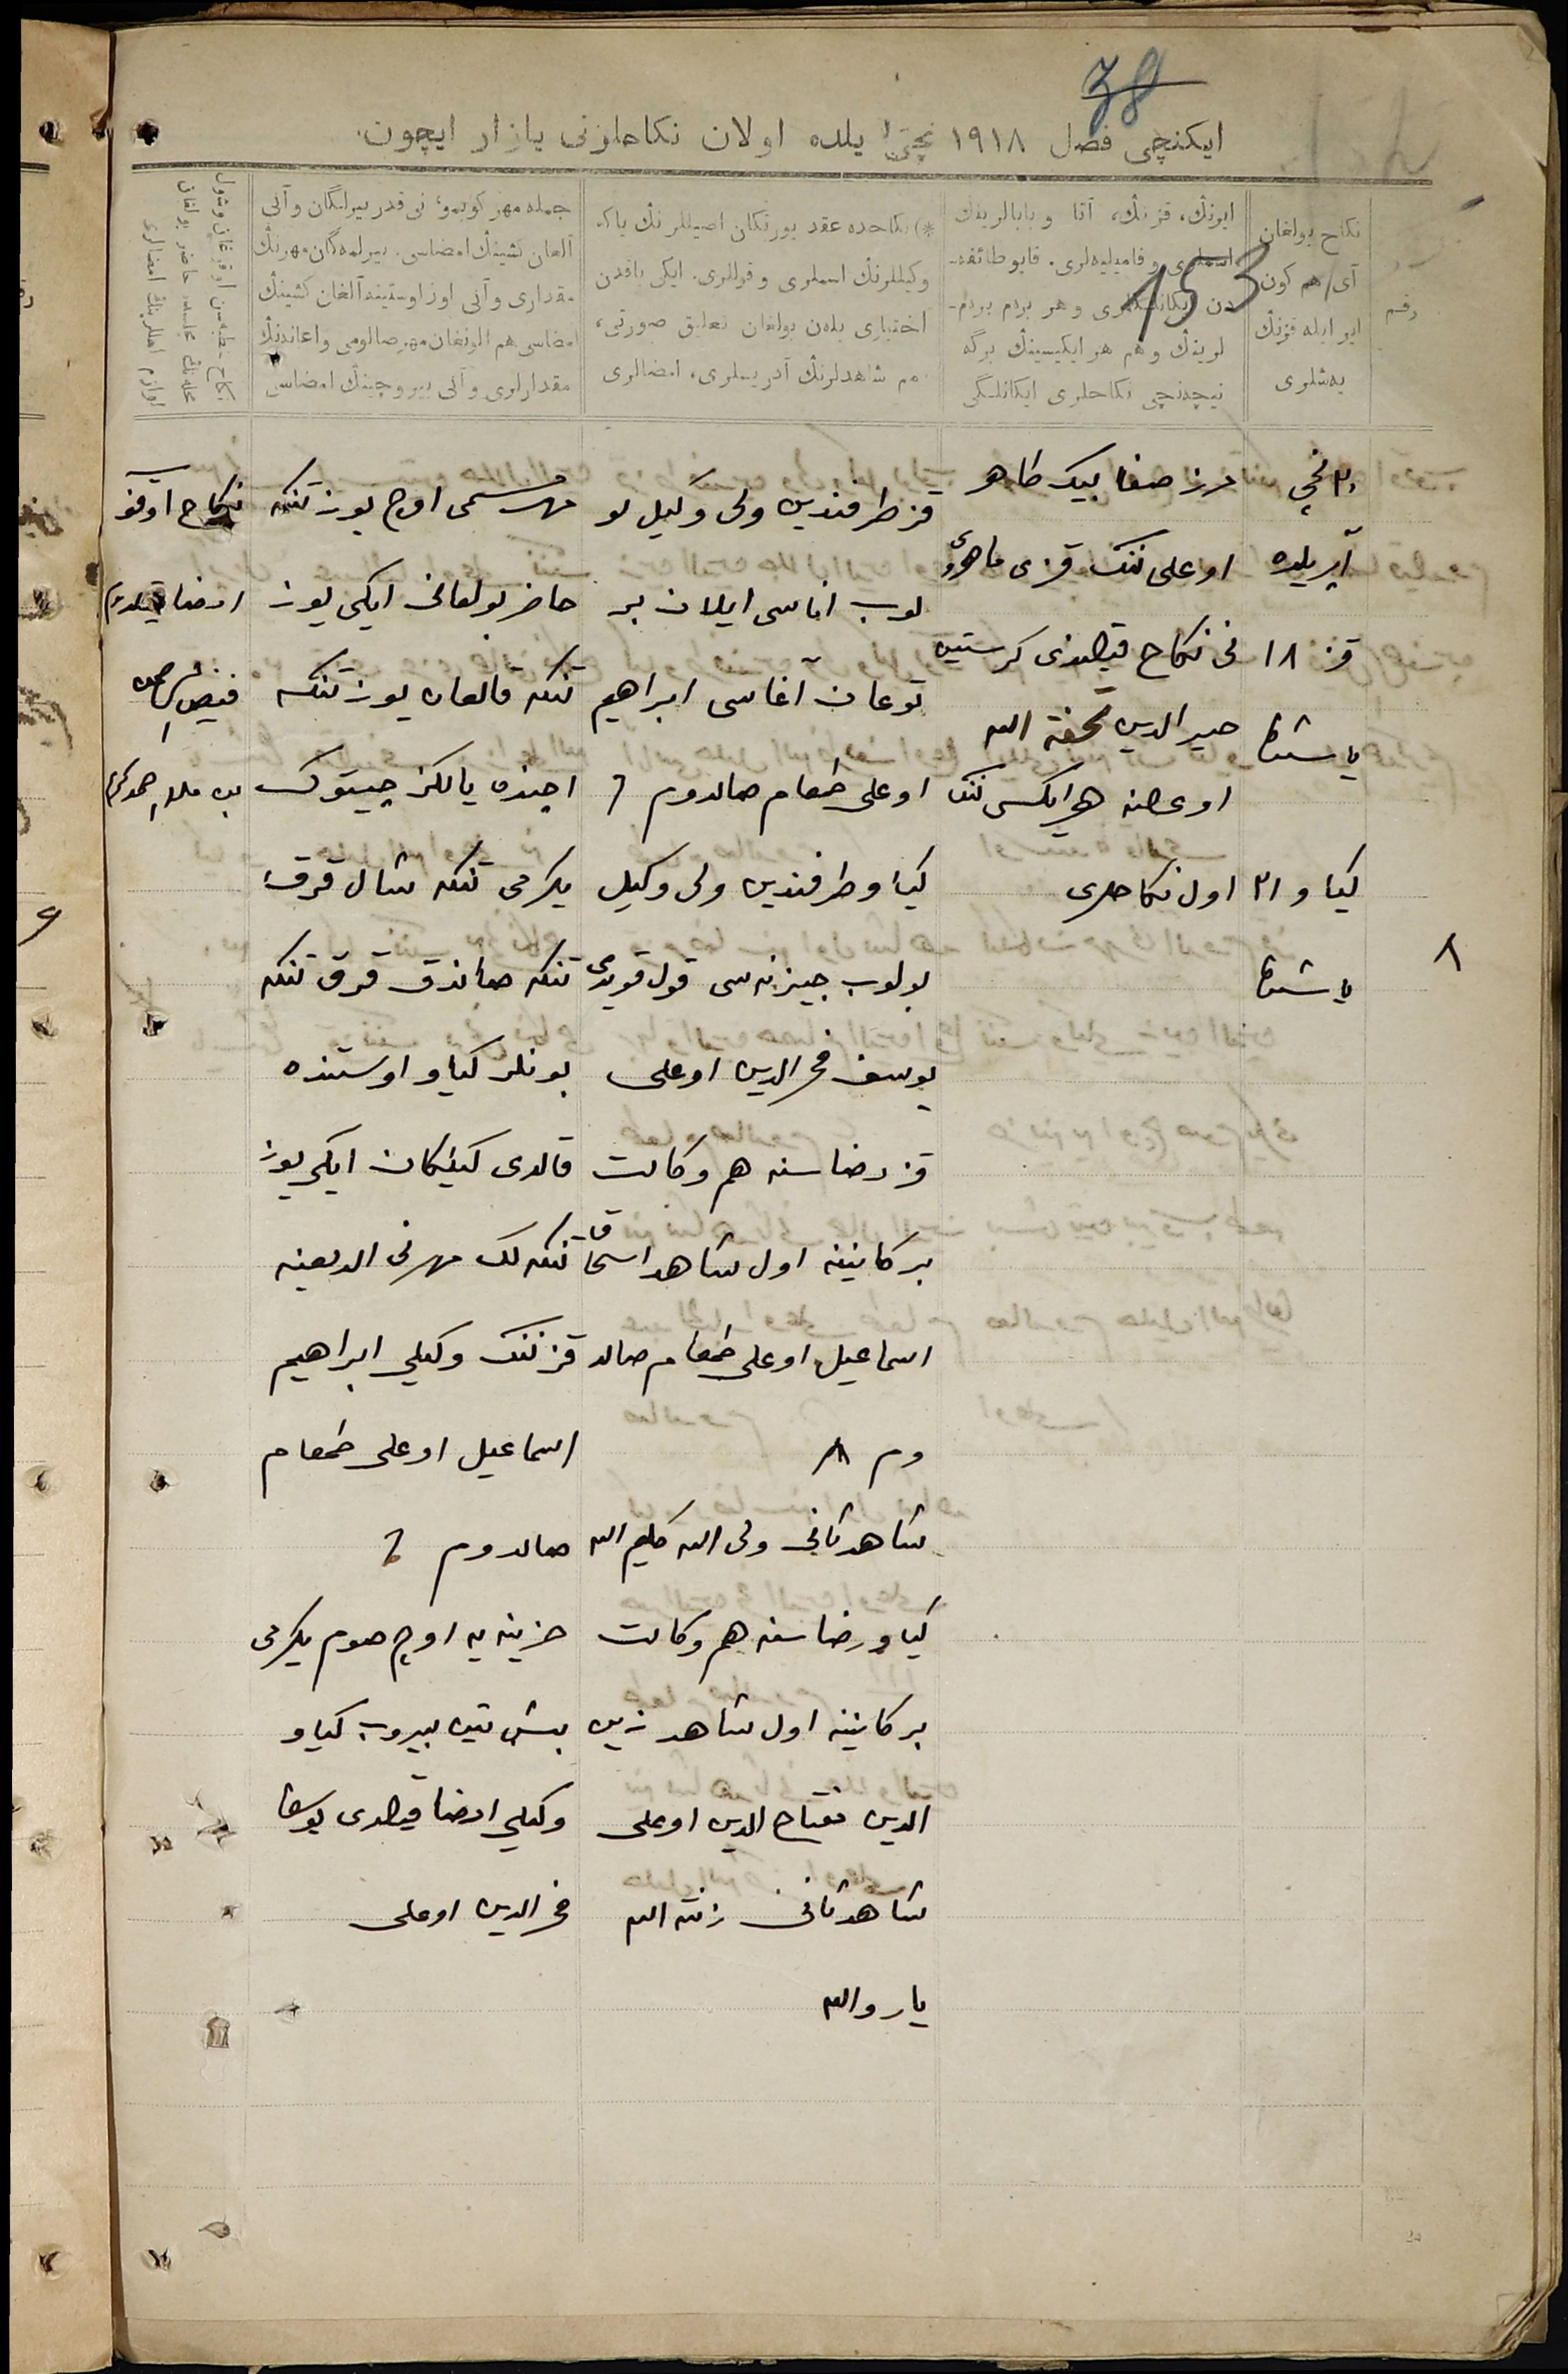 38
ایکنچی فصل ۱۹۱۸ نچی یلده اولان نکاحلرنی یازار ایچون.
153
رقم
نکاح بولغان
آی/هم کون
ایر ایله قزنڭ
یه‌شلری
ایرنڭ، قزنڭ، آتا و بابالرینڭ
اسملری و فامیلیه‌لری. قایو طائفه‌ـ
دن ایکانلکلری و هر بردم بردم‌ـ
لرینڭ و هم هر ایکیسینڭ برگه
نیچه‌نچی نکاحلری ایکانلگی
*) نکاحده عقد یورتکان اصیللرنڭ یاکه
وکیللرنڭ اسملری و قوللری. ایکی یاقدن
اختیاری بله‌ن بولغان تعلیق صورتی،
هم شاهدلرنڭ آدریسلری، امضالری
جمله مهر کوبمو، نی قدر بیرلگان و آنی
آلغان کشینڭ امضاسی. بیرلمه‌گان مهرنڭ
مقداری و آنی اوز اوستینه آلغان کشینڭ
امضاسی هم النغان مهر صالومی و اعانه‌نڭ
مقدارلری و آنی بیروچینڭ امضاسی
۸
۳۰نچی
آپریلده
قز ۱۸
یاشنده
کیاو ۲۱
یاشنده
مرز صفا بیک طاهر
اوغلی ننک قزی ماهرو
نی نکاح قیلدی کرستین
خیر الدین تحفة الله
اوغلینه هر ایکسی ننک
اول نکاحلری
قز طرفندین ولی وکیل لو
لوب اناسی ایلان بر
توغان آغاسی ابراهیم
اوغلی طمغام صالدوم
کیاو طرفندین ولی وکیل
بولوب جیزنه‌سی قول قویدی
یوسف فخر الدین اوغلی
قز رضاسنه هم وکالت
برکانینه اول شاهد اسحاق
اسماعیل اوغلی طمغام صالد
وم
شاهد ثانی ولی الله کلیم الله
کیاو رضاسنه هم وکالت
برکانینه اول شاهد زین
الدین مفتاح الدین اوغلی
شاهد ثانی زنة الله
یار والله
مهر مسمی اوچ یوز تنکه
حاضر بولغانی ایکی یوز
تنکه قالغان یوز تنکه
اچنده یالکز چیتوک
یکرمی تنکه شال قرق
تنکه صاندق قرق تنکه
بونلر کیاو اوستنده
قالدی کیلکان ایکی یوز
تنکه‌لک مهرنی الدیمنه
قز ننک وکیلی ابراهیم
اسماعیل اوغلی طمغام
صالدوم
خزینه یه اوچ صوم یکرمی
بیش تین بیروب کیاو
وکیلی امضا قیلدی یوسف
فخر الدین اوغلی
نکاح اوقو
امضا قیلدم